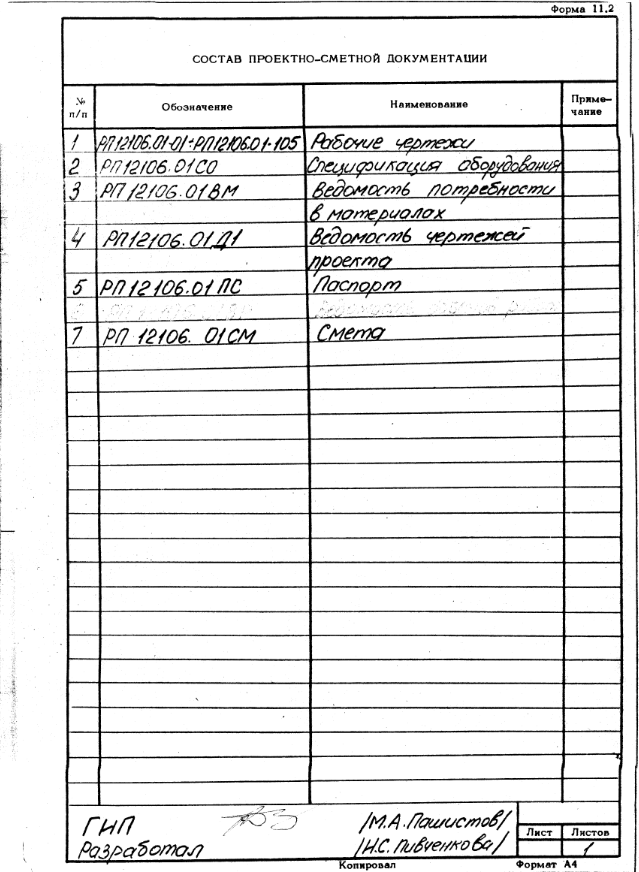 Форма 11.2
СОСТАВ ПРОЕКТНО-СМЕТНОЙ ДОКУМЕНТАЦИИ
№ п/п Обозначение Наименование Приме-
чание
1 РП12106.01-01÷РП12106.01-105 Рабочие чертежи
2 РП12106.01СО Спецификация оборудования
3 РП12106.01ВМ Ведомость потребности
в материалах
4 РП12106.01Д1 Ведомость чертежей
проекта
5 РП12106.01ПС Паспорт
6
7 РП 12106. 01СМ Смета
ГИП /М.А.Пашистов/
Разработал /Н.С.Пивченкова/
Лист Листов
1
Копировал Формат А4